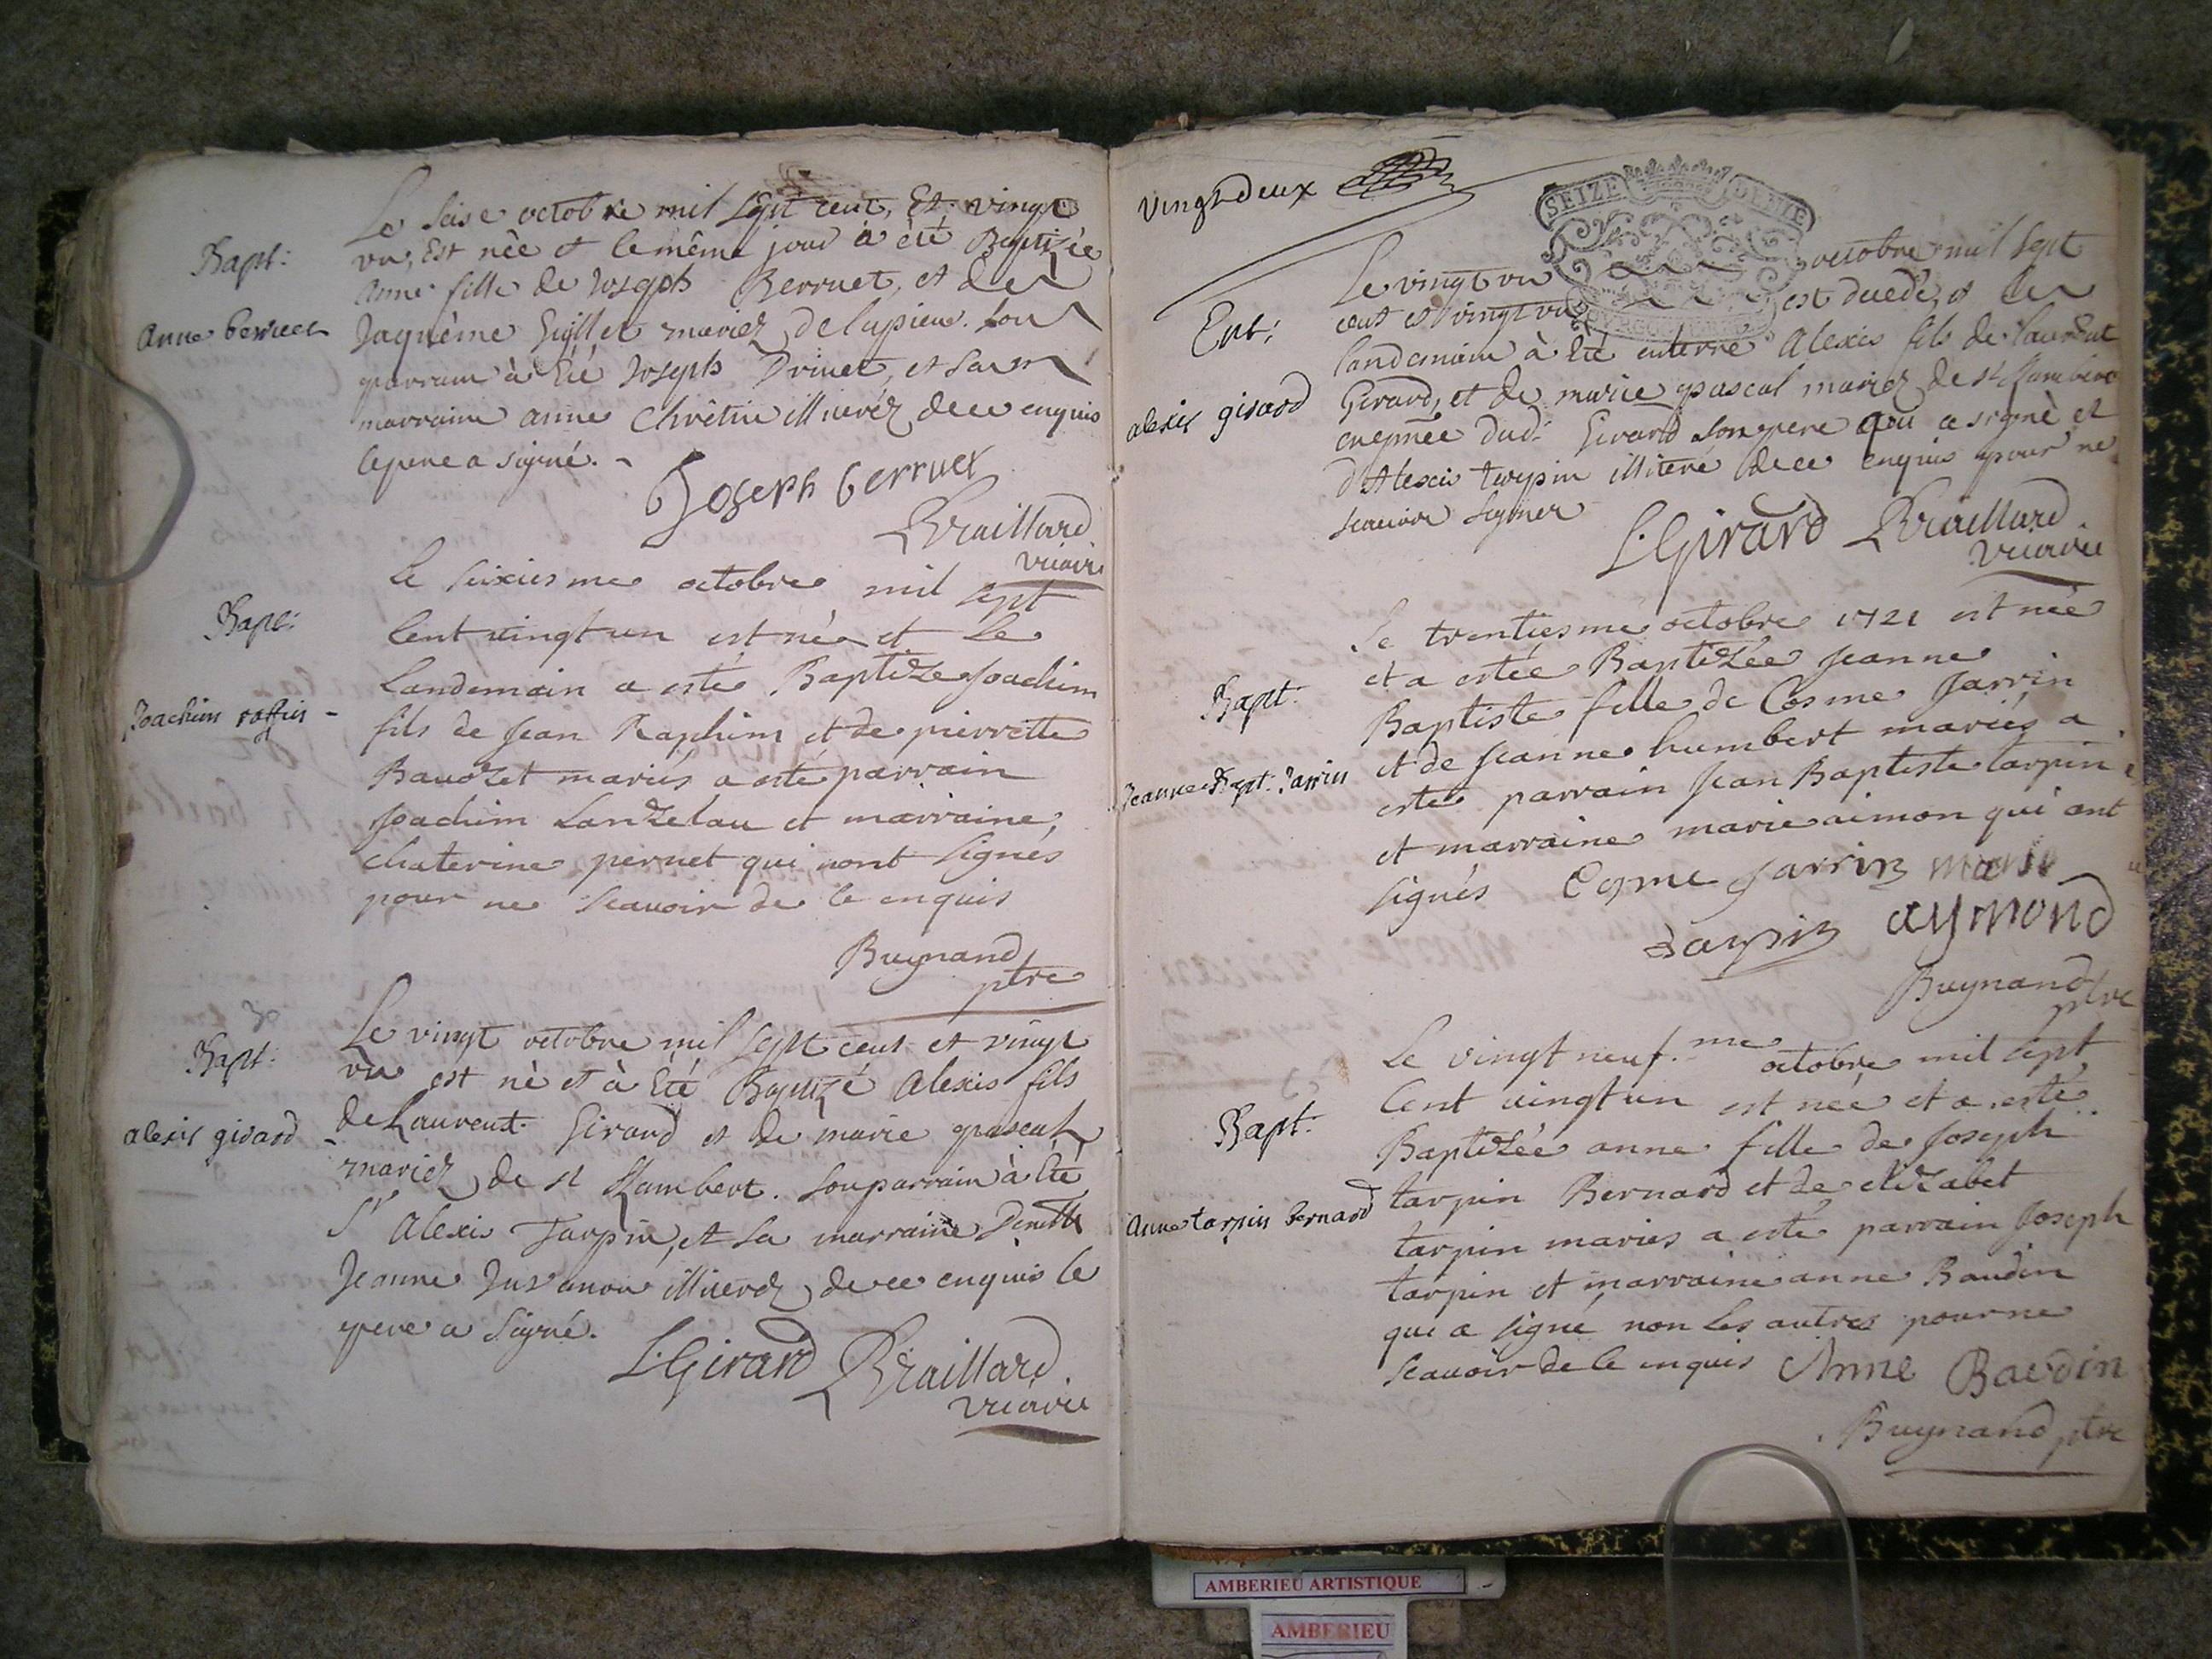 Bapt:
Anne berruet
Le seise octobre mil sept cent, Et vingt
vn, Est née et le même jour à été Baptizée
Anne fille de Joseph Berruet, et de
Jaquême Gillet mariez de lupieu. Son
parrain à été Joseph Drivet, et sa
marraine anne Chrêtin illiterez de ce enquis
le pere a signé.
Joseph berruet
Braillard
vicaire
Bapt:
Joachim raffin
Le seixiesme octobre mil sept
Cent vingt un est né et le
Landemain a esté Baptizé Joachim
fils de Jean Raphim et de pierrette
Baudet mariés a esté parrain
Joachim Lanzelau et marraine,
Chaterine pernet qui nont signés
pour ne scauoir de ce enquis
Buynand
ptre
Bapt:
alexis girard
Le vingt octobre mil sept cent et vingt
vn est né et à été Baptizé Alexis fils
de Laurent Girard et de marie pascal
mariez de st Rambert. Son parrain à été
Sr Alexis Tarpin, et la marraine Demlle
Jeanne illiterez de ce enquis le
pere a signé.
L. Girard Braillard
vicaire
vingt deux
SEIZE DENIE
Ent:
alexis girard
Le vingt vn octobre mil sept
cent et vingt vn est decedé, et le
landemain à été enterré Alexis fils de laurent
Girard, et de marie pascal mariez de st Rambert
en pnce dud. Girard son pere qui a signé et
d'Alexis tarpin illiteré de ce enquis pour ne
scauoir signer
L. Girard Braillard
vicaire
Bapt:
Jeanne Bapt: Jarrin
Le trentiesme octobre 1721 est née
et a estée Baptizée Jeanne
Baptiste fille de Cosme Jarrin
et de Jeanne humbert mariés a
esté parrain Jean Baptiste tarpin
et marraine marie aimon qui ont
signés Cosme Jarrin marie
tarpin aymond
Buynand ptre
Bapt:
Anne tarpin bernard
Le vingt neuf.me octobre mil sept
Cent vingt un est née et a esté
Baptizée anne fille de Joseph
tarpin Bernard et de elizabet
tarpin mariés a esté parrain Joseph
tarpin et marraine anne Baudin
qui a signé non les autres pour ne
scauoir de ce enquis Anne Baudin
Buynand ptre
AMBERIEU ARTISTIQUE
AMBERIEU